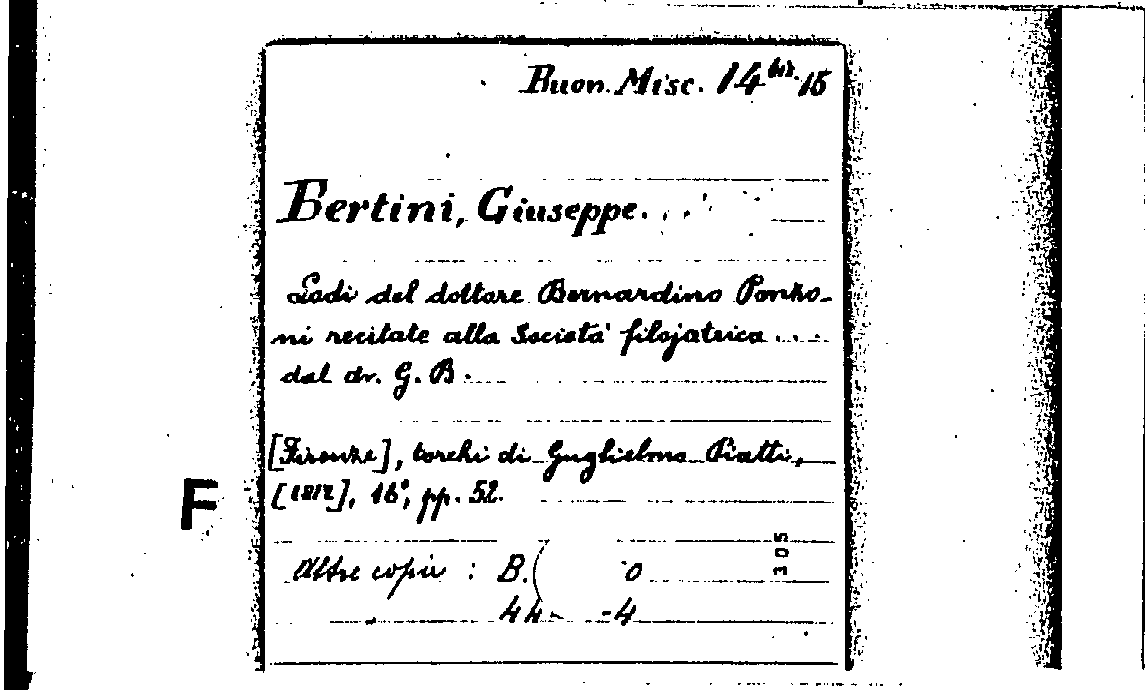 Buon. Misc. 14 bis. 15
Bertini, Giuseppe.
Lodi del dottore Bernardino Ponzo-
ni recitate alla Società filojatrica ...
dal dr. G. B.
[Firenze], torchi di Guglielmo Piatti,
[1812], 16°, pp. 52.
F
305
Altre copie : B. 0
44 -4